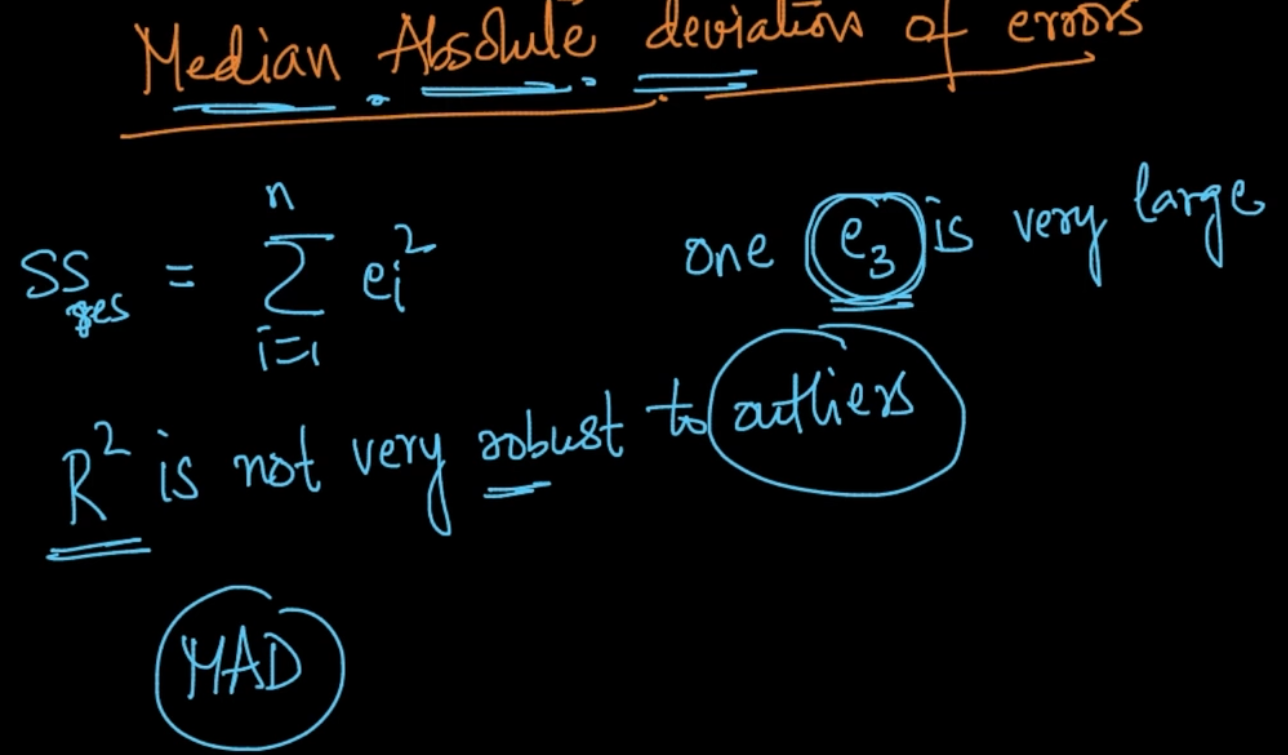 Median Absolute deviation of errors
SS_res = \sum_{i=1}^{n} e_i^2 one e_3 is very large
R^2 is not very robust to outliers
MAD